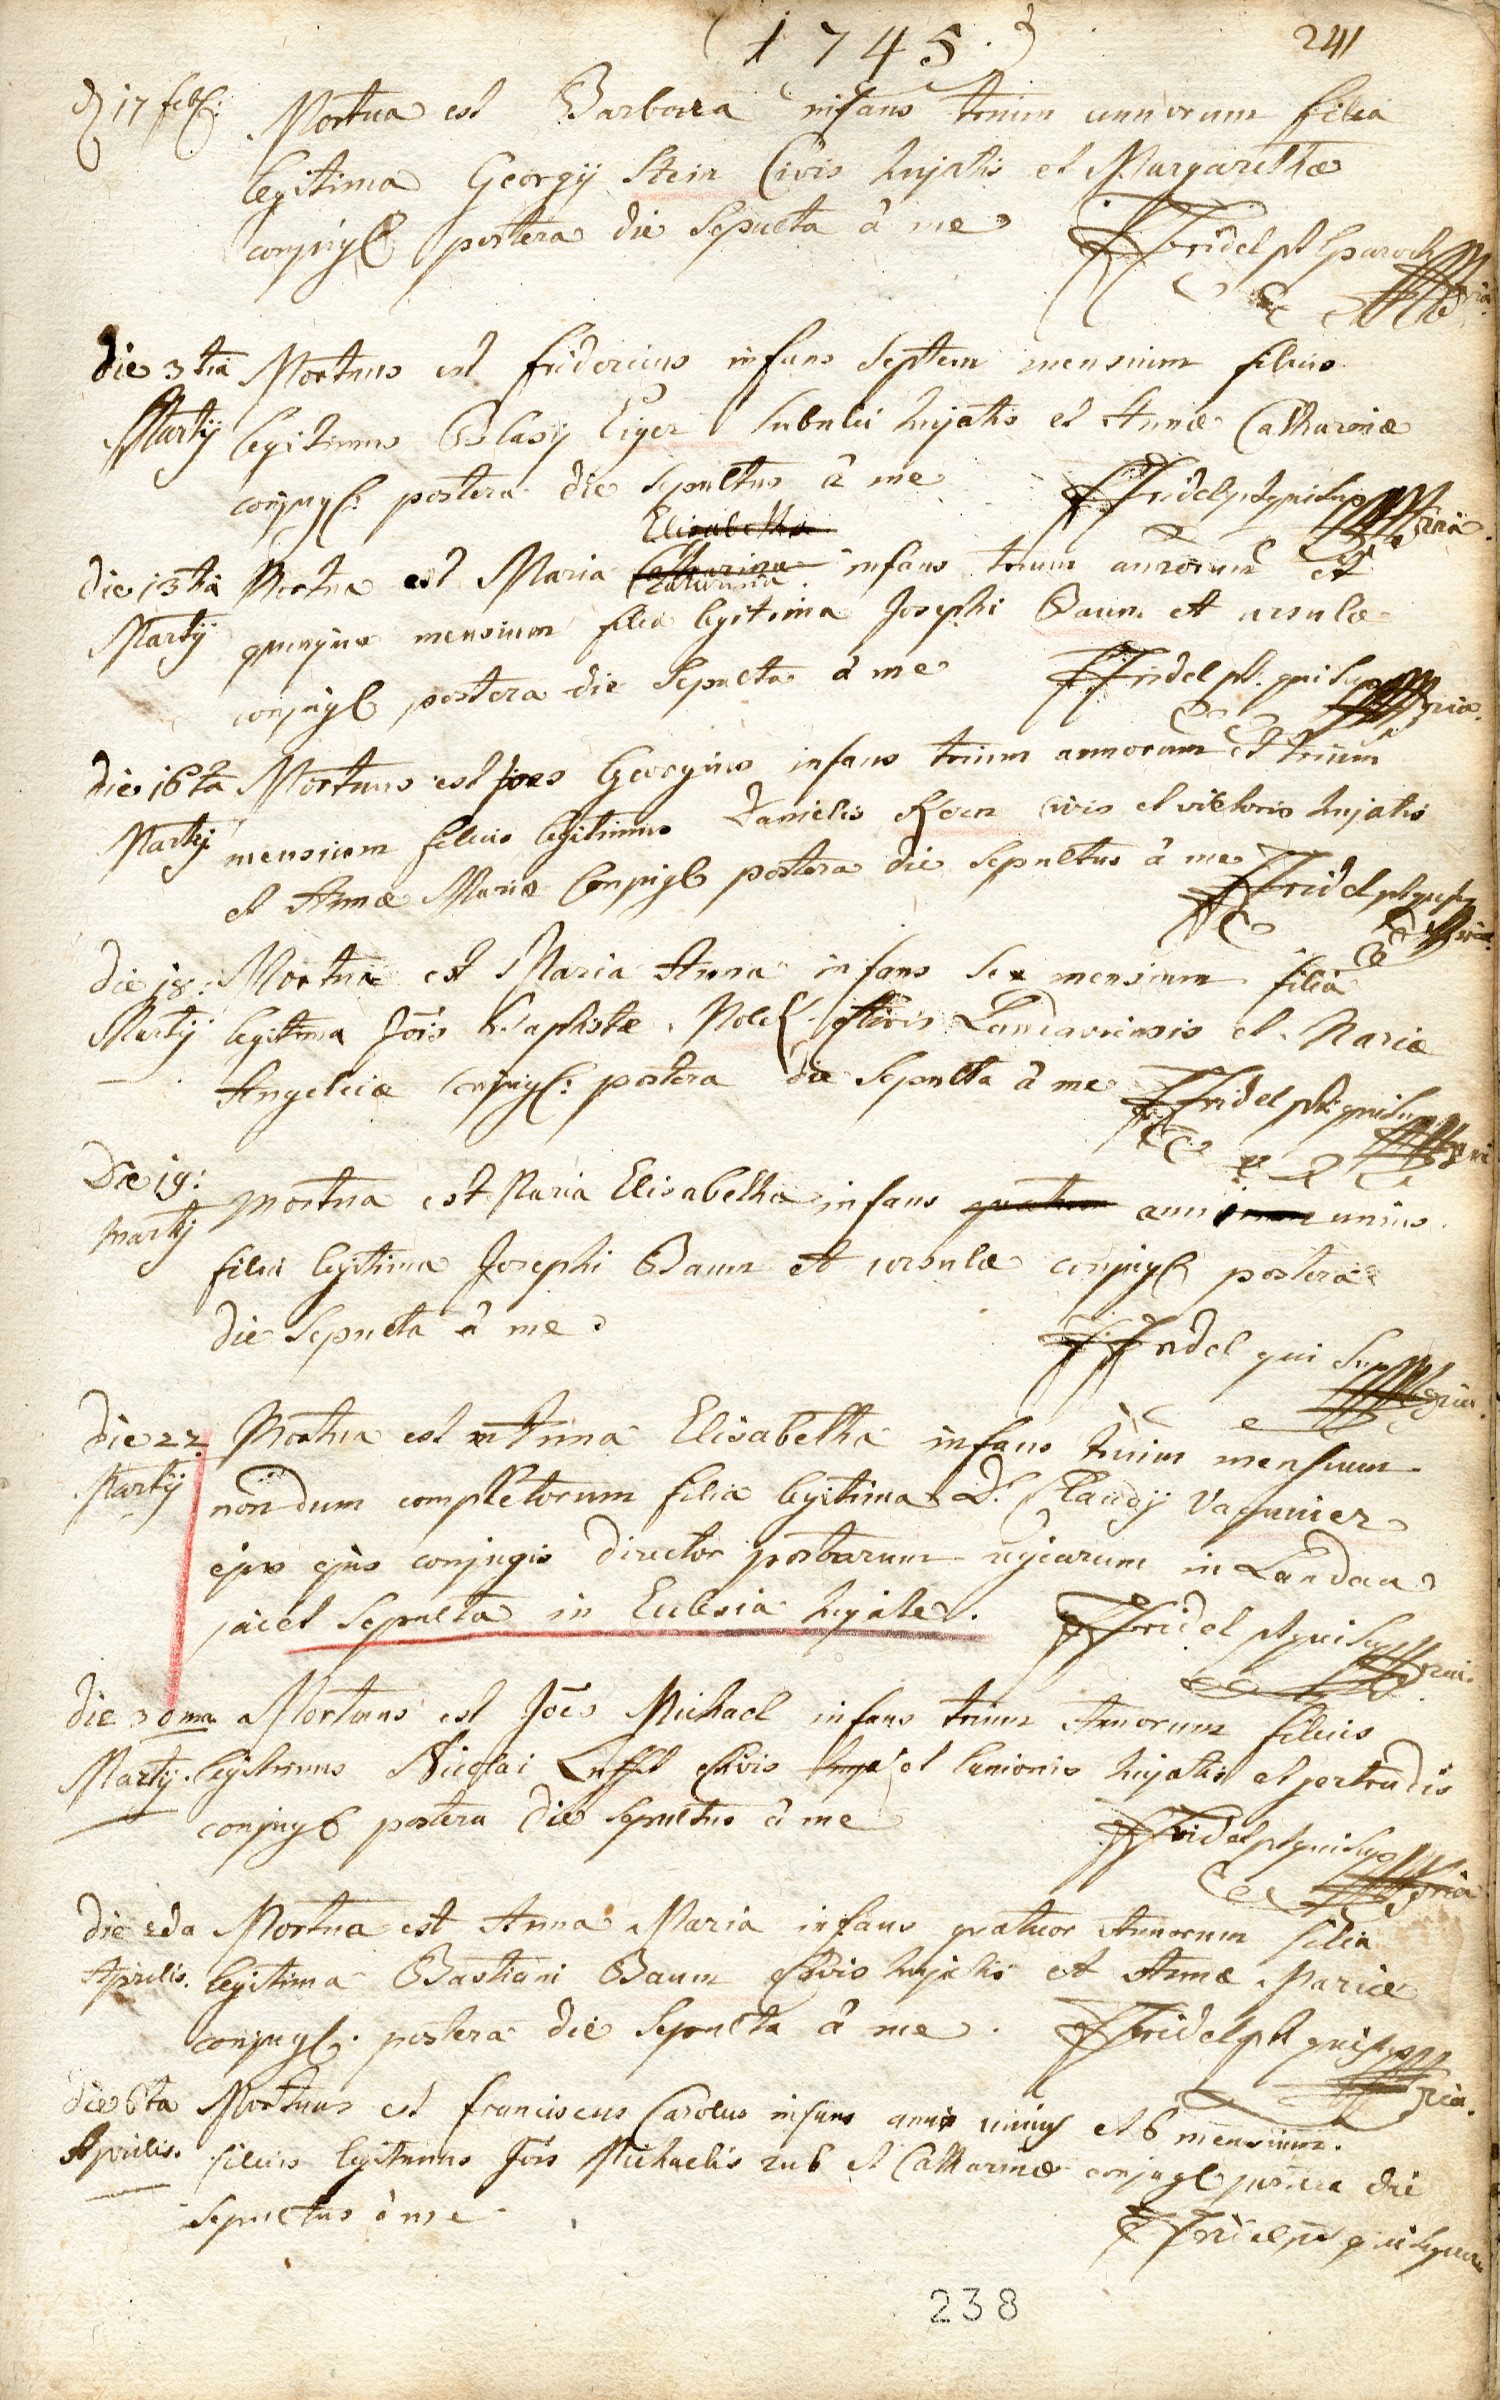 (1745.)
241
d 17 feb: Mortua est Barbara infans trium annorum filia
legitima Georgij Stein Civis hujatis et Margarethæ
conjug: postera die sepulta à me FFridel pt paroch
die 3tia Mortuus est fridericus infans septem mensium filius
Martij legitimus Blasij Eiger subulci hujatis et Annæ Catharinæ
conjug: postera die sepultus à me FFridel pt qui sup mpria
Elisabetha
die 13tia Mortua est Maria Catharina infans trium annorum et
Catharina
Martij quinque mensium filia legitima Josephi Baum et ursulæ
conjug postera die sepulta à me FFridel pt. qui sup mpria.
die 16ta Mortuus est joes Georgius infans trium annorum et trium
Martij mensium filius legitimus Danielis Kern civis et vietoris hujatis
et Annæ Mariæ Conjug postera die sepultus à me FFridel pt qui sup
mpria
die 18: Mortua est Maria Anna infans sex mensium filia
Martij legitima Jois Baptistæ Civis Landaviensis et Mariæ
Angelicæ conjug: postera die sepulta à me FFridel pt qui sup
Die 19: mortua est Maria Elisabetha infans anni unius.
Martij
filia legitima Josephi Baum et ursulæ conjug postera
die sepulta à me FFridel qui sup mpria.
die 22 Mortua est Anna Elisabetha infans trium mensium
Martij nondum completorum filia legitima D. Claudij Vagunier
ejus conjugis director postarum regiarum in Landau
jacet sepulta in Ecclesia hujate. FFridel pt qui sup mpria.
die 30ma Mortuus est Joes Michael infans trium Annorum filius
Martij. legitimus Nicolai Lufft Civis et lanionis hujatis et gertrudis
conjug postera die sepultus à me FFridel pt qui sup
mpria
die 2da Mortua est Anna Maria infans quatuor Annorum filia
Aprilis. legitima Bastiani Baum Civis hujatis et Annæ Mariæ
conjug: postera die sepulta à me. FFridel pt qui sup
mpria.
die 6ta Mortuus est franciscus Carolus infans anni unius et 6 mensium.
Aprilis. filius legitimus Jois Michaelis rub et Catharinæ conjug postera die
sepultus à me FFridel pt qui supra
238